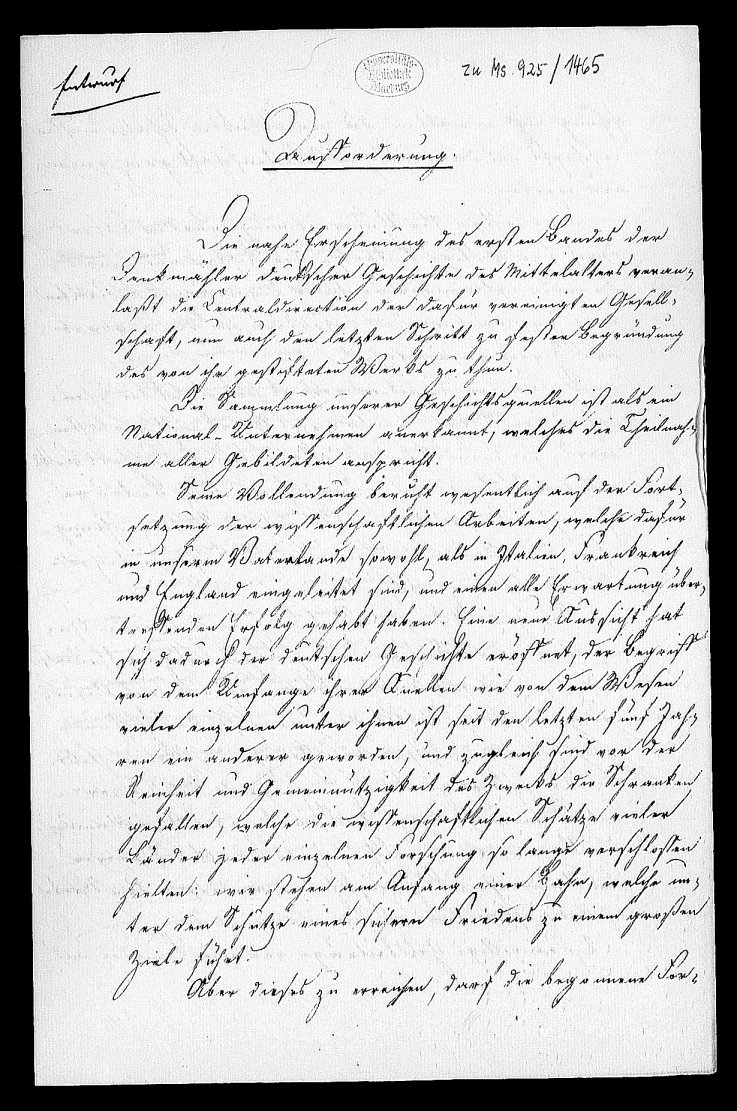 Entwurf
Universitäts-
Bibliothek
Marburg
zu Ms. 925/1465
Aufforderung.
Die nahe Erscheinung des ersten Bandes der
Denkmähler deutscher Geschichte des Mittelalters veran-
laßt die Centraldirection der dafür vereinigten Gesell-
schaft, nun auch den letzten Schritt zu fester Begründung
des von ihr gestifteten Werks zu thun.
Die Sammlung unserer Geschichtsquellen ist als ein
National-Unternehmen anerkannt, welches die Theilnah-
me aller Gebildeten anspricht.
Seine Vollendung beruht wesentlich auf der Fort-
setzung der wissenschaftlichen Arbeiten, welche dafür
in unserm Vaterlande sowohl, als in Italien, Frankreich
und England eingeleitet sind, und einen alle Erwartung über-
treffenden Erfolg gehabt haben. Eine neue Aussicht hat
sich dadurch der deutschen Geschichte eröffnet, der Begriff
von dem Umfange ihrer Quellen wie von dem Wesen
vieler einzelnen unter ihnen ist seit den letzten fünf Jah-
ren ein anderer geworden, und zugleich sind vor der
Reinheit und Gemeinnützigkeit des Zwecks die Schranken
gefallen, welche die wissenschaftlichen Schätze vieler
Länder jeder einzelnen Forschung so lange verschlossen
hielten: wir stehen am Anfang einer Bahn, welche un-
ter dem Schutze eines sichern Friedens zu einem großen
Ziele führt.
Aber dieses zu erreichen, darf die begonnene For-